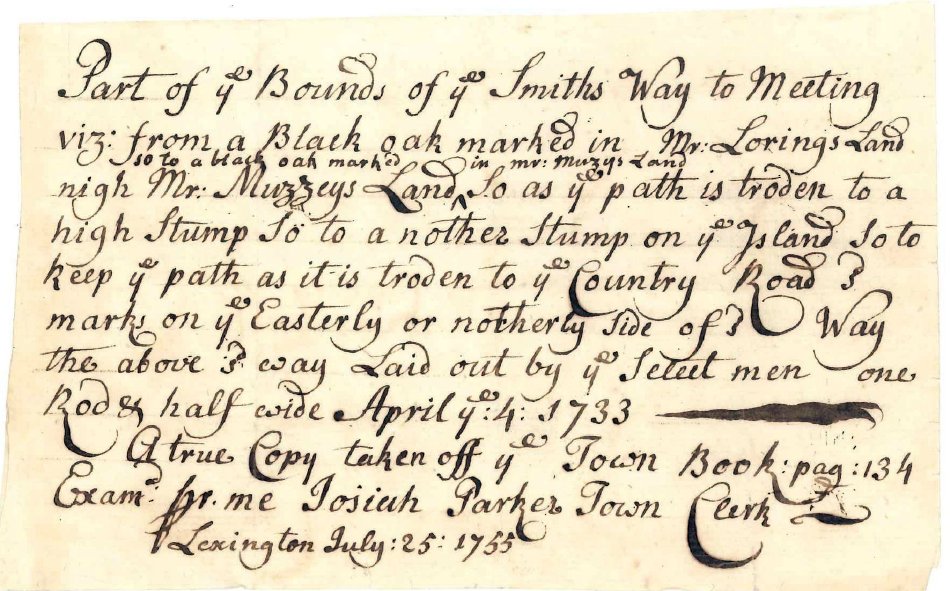 Part of yͤ Bounds of yͤ Smiths Way to Meeting
viz: from a Black oak marked in Mr: Lorings Land
so to a black oak marked in mr: muzys Land
nigh Mr: Muzzeys Land ‸ So as yͤ path is troden to a
high Stump So to a nother Stump on yͤ Island So to
keep yͤ path as it is troden to yͤ Country Road
marks on yͤ Easterly or notherly Side of Way
the above way Laid out by yͤ Select men one
Rod & half wide April yͤ: 4: 1733
A true Copy taken off yͤ Town Book: pag: 134
Examᵈ pr. me Josiah Parker Town Clerk
Lexington July: 25: 1755